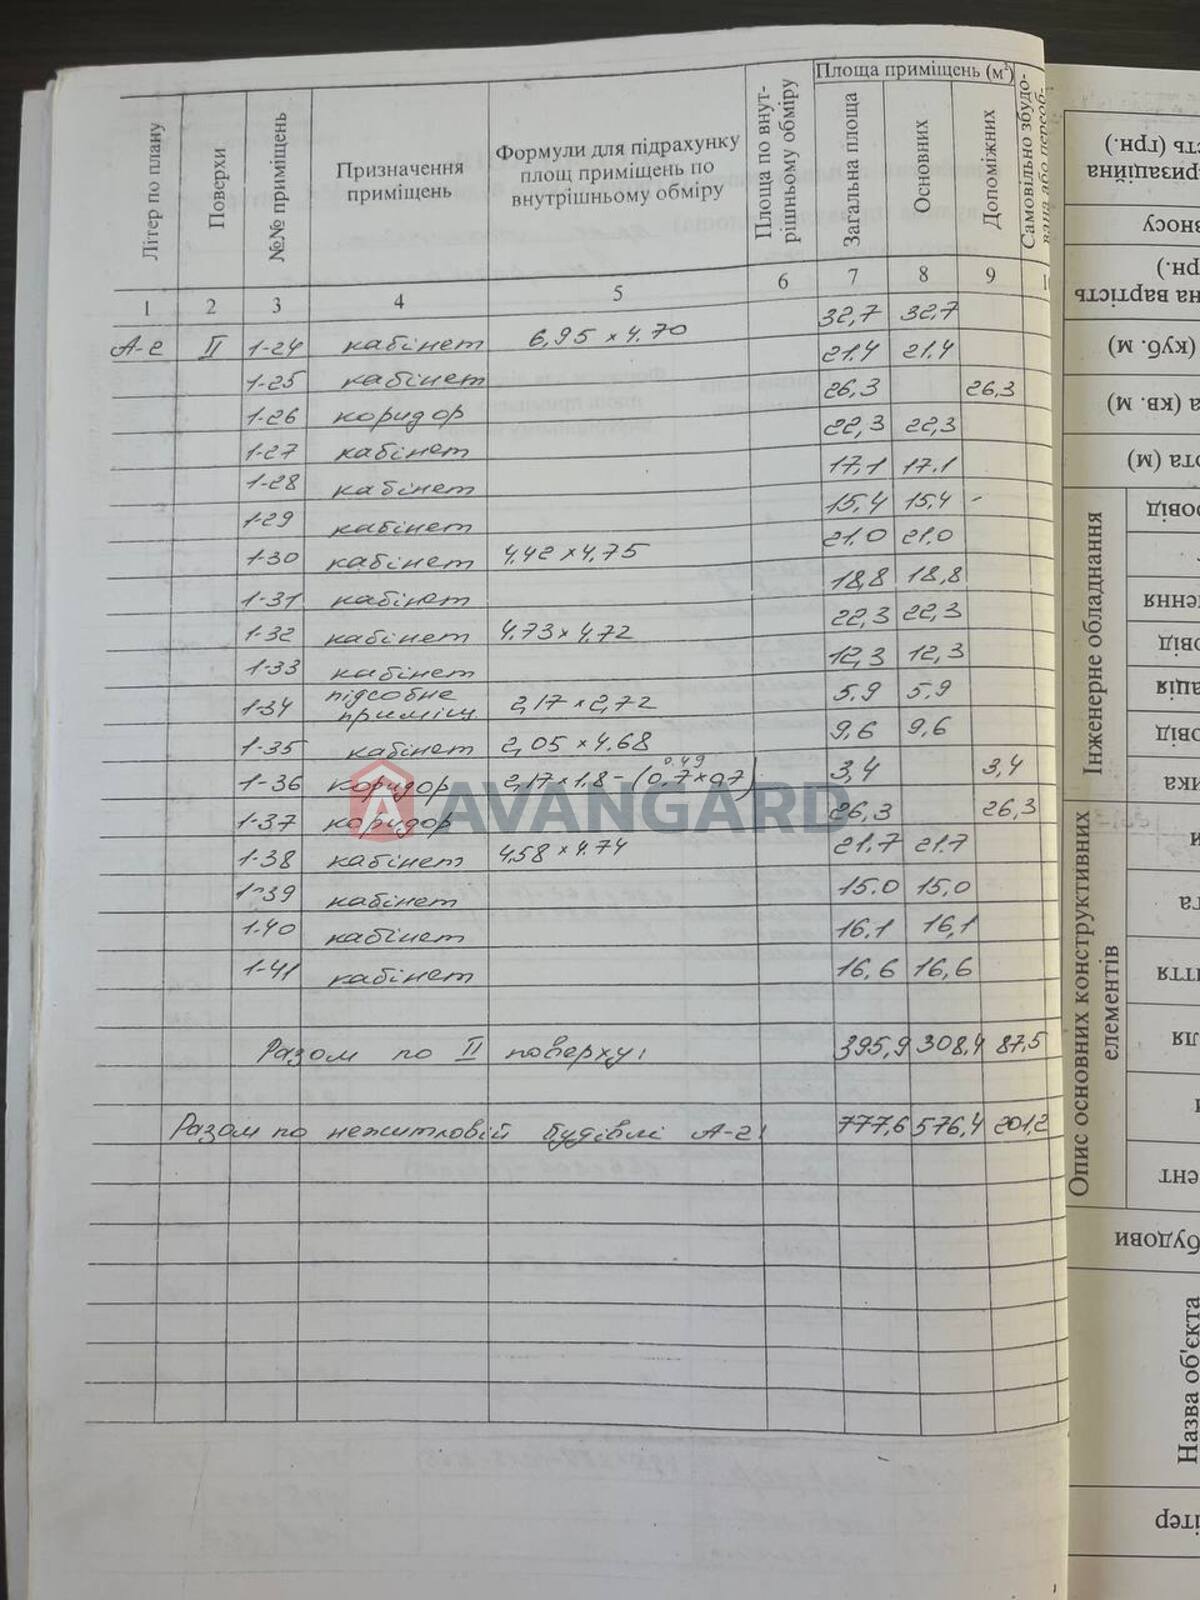 Літер по плану
Поверхи
№№ приміщень
Призначення приміщень
Формули для підрахунку площ приміщень по внутрішньому обміру
Площа по внут-рішньому обміру
Площа приміщень (м²)
Загальна площа
Основних
Допоміжних
Самовільно збудо-
вана або переоб-
1 2 3 4 5 6 7 8 9
А-2 II 1-24 кабінет 6,95 × 4.70 32,7 32,7
1-25 кабінет 21.4 21.4
1-26 коридор 26,3 26,3
1-27 кабінет 22,3 22,3
1-28 кабінет 17,1 17.1
1-29 кабінет 15,4 15,4 -
1-30 кабінет 4,42 × 4,75 21.0 21.0
1-31 кабінет 18,8 18,8
1-32 кабінет 4.73 × 4,72 22,3 22,3
1-33 кабінет 12,3 12,3
1-34 підсобне приміщ. 2,17 × 2,72 5.9 5.9
1-35 кабінет 2,05 × 4.68 9,6 9,6
0.49
1-36 коридор 2,17 × 1,8 - (0,7 × 0,7) 3,4 3,4
1-37 коридор 26,3 26,3
AVANGARD
1-38 кабінет 4,58 × 4.74 21.7 21.7
1-39 кабінет 15.0 15,0
1-40 кабінет 16.1 16,1
1-41 кабінет 16,6 16,6
Разом по II поверху: 395,9 308,4 87,5
Разом по нежитловій будівлі А-2: 777,6 576,4 201,2
ризаційна
сть (грн.)
зносу
на вартість
рн.)
(куб. м)
а (кв. м)
ота (м)
Інженерне обладнання
Опис основних конструктивних елементів
будови
Назва об'єкта
ітер